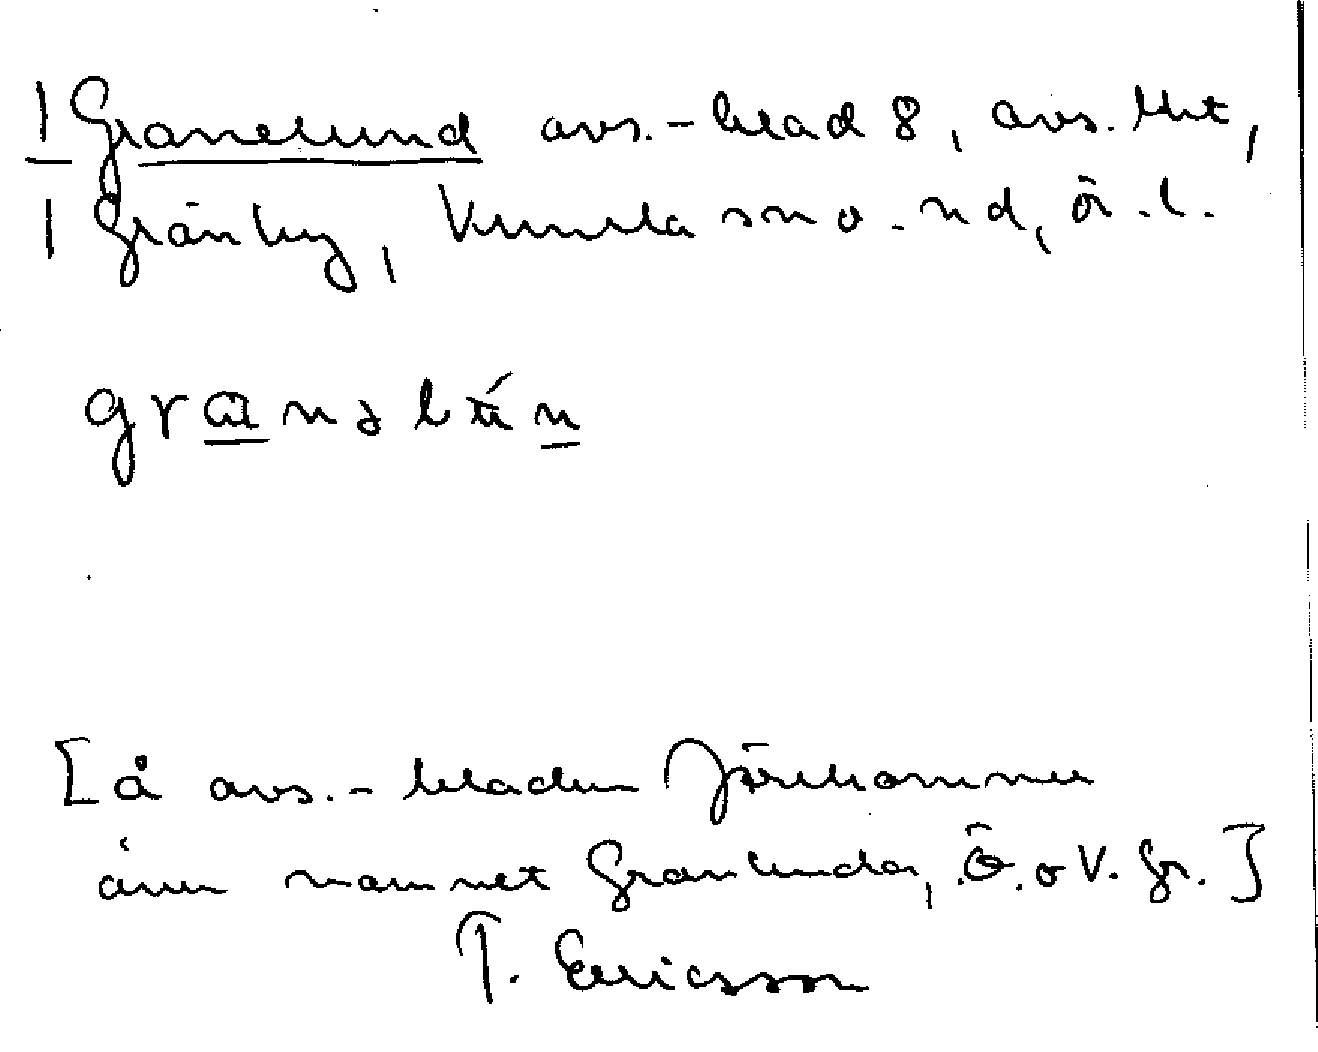 1 Granelund avs.-blad 8, avs. lht,
1 Gränby, Kumla sn o. hd, ör. l.
[å avs.-bladen förekommer
även namnet Granlunda, Ö. o V. Gr.]
T. Ericsson